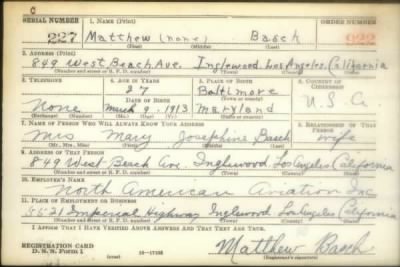 C
SERIAL NUMBER 1. NAME (Print) ORDER NUMBER
227 Matthew (none) Basch 922
(First) (Middle) (Last)
2. ADDRESS (Print)
849 West Beach Ave. Inglewood Los Angeles California
(Number and street or R. F. D. number) (Town) (County) (State)
3. TELEPHONE 4. AGE IN YEARS 5. PLACE OF BIRTH 6. COUNTRY OF CITIZENSHIP
27 Baltimore
DATE OF BIRTH (Town or county)
None March 9, 1913 Maryland U.S.A.
(Exchange) (Number) (Mo.) (Day) (Yr.) (State or country)
7. NAME OF PERSON WHO WILL ALWAYS KNOW YOUR ADDRESS 8. RELATIONSHIP OF THAT PERSON
Mrs Mary Josephine Basch wife
(Mr., Mrs., Miss) (First) (Middle) (Last)
9. ADDRESS OF THAT PERSON
849 West Beach Ave. Inglewood Los Angeles California
(Number and street or R. F. D. number) (Town) (County) (State)
10. EMPLOYER'S NAME
North American Aviation Inc
11. PLACE OF EMPLOYMENT OR BUSINESS
Imperial Highway Inglewood Los Angeles California
(Number and street or R. F. D. number) (Town) (County) (State)
I AFFIRM THAT I HAVE VERIFIED ABOVE ANSWERS AND THAT THEY ARE TRUE.
REGISTRATION CARD
D. S. S. FORM 1 (over) 16—17105 Matthew Basch
(Registrant's signature)